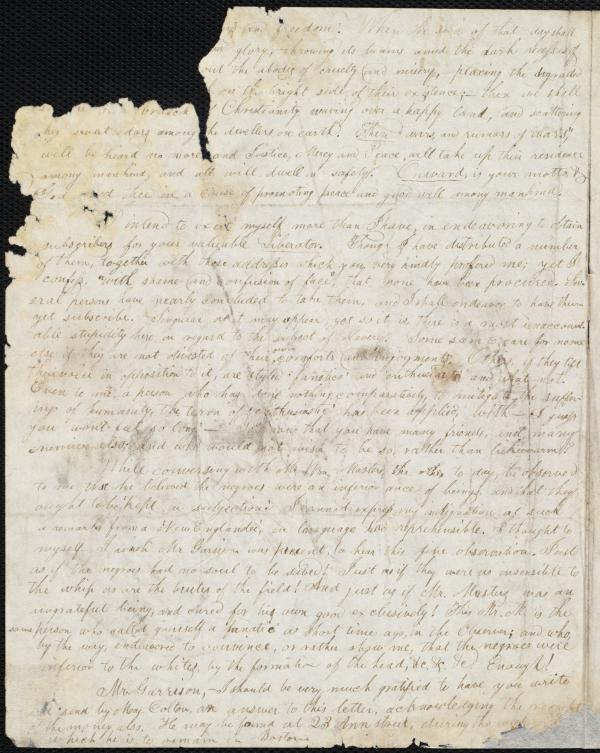 and freedom! When the sun of that day shall
glory, throwing its beams amid the dark recesses of
out the abodes of cruelty and misery, placing the degraded
on the bright side of their existence; — then we shall
of Christianity waving over a happy land, and scattering
her sweet odors among the dwellers on earth! Then "wars and rumors of wars"
will be heard no more and Justice, Mercy and Peace, will take up their residence
among mankind, and all will dwell in safety. Onward, is your motto &
God speed thee in a cause of promoting peace and good will among mankind.
intend to exert myself more than I have, in endeavoring to obtain
subscribers for your valuable Liberator. Though I have distributed a number
of them, together with those addresses which you very kindly proffered me; yet I
confess, "with shame and confusion of face," that none have been procured. Sev-
eral persons have nearly concluded to take them, and I shall endeavor to have them
yet subscribe. Singular as it may appear, yet so it is, there is a most unaccount-
able stupidity here, in regard to the subject of slavery. Some seem to care for none
else if they are not divested of their own comforts and enjoyments. Others, if they lift
their voice in opposition to it, are styled 'fanatics' and enthusiasts and what not.
Even to me, a person who has done nothing, comparatively, to mitigate the suffer-
ings of humanity, the term of 'enthusiast' has been applied, with — I guess
you won't eat so long. — I know that you have many friends, and many
enemies also; and who would not wish to be so, rather than lukewarm
While conversing with Mr. Wm. Masters, the other to day, he observed
to me that he believed the negroes were an inferior race of beings, and that they
ought to be kept in subjection! I cannot express my indignation at such
a remark from a New Englander, in language too reprehensible. I thought to
myself, I wish Mr. Garrison was present, to hear this fine observation. Just
as if the negroes had no soul to be saved! Just as if they were as insensible to
the whip as are the brutes of the field! And just as if Mr. Masters was an
ungrateful being, and cared for his own good exclusively! This Mr. M. is the
same person who called yourself a 'fanatic' a short time ago, in the Observer; and who,
by the way, endeavored to convince, or rather show me, that the negroes were
inferior to the whites, by the formation of the head, &c. &c. Enough!
Mr. Garrison, — I should be very much gratified to have you write
& send by Mr. Colton, an answer to this letter, acknowledging the receipt
of the money also. He may be found at 23 Ann street, during the week
which he is to remain in Boston.